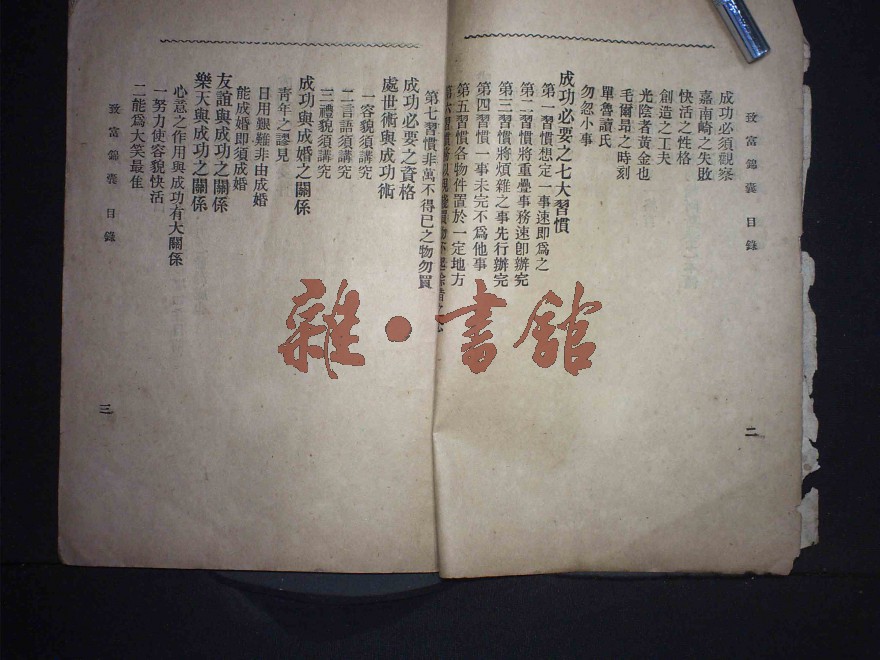 致富錦囊 目錄
二
成功必須觀察
嘉南崎之失敗
快活之性格
創造之工夫
光陰者黃金也
毛爾昂之時刻
單魯讀氏
勿忽小事
成功必要之七大習慣
第一習慣想定一事速即爲之
第二習慣將重疊事務速卽辦完
第三習慣將煩雜之事先行辦完
第四習慣一事未完不爲他事
第五習慣各物件置於一定地方
第六習慣
第七習慣非萬不得已之物勿買
成功必要之資格
處世術與成功術
一容貌須講究
二言語須講究
三禮貌須講究
成功與成婚之關係
靑年之謬見
日用艱難非由成婚
能成婚卽須成婚
友誼與成功之關係
樂天與成功之關係
心意之作用與成功有大關係
一努力使容貌快活
二能爲大笑最隹
致富錦囊 目錄
三
雜·書館